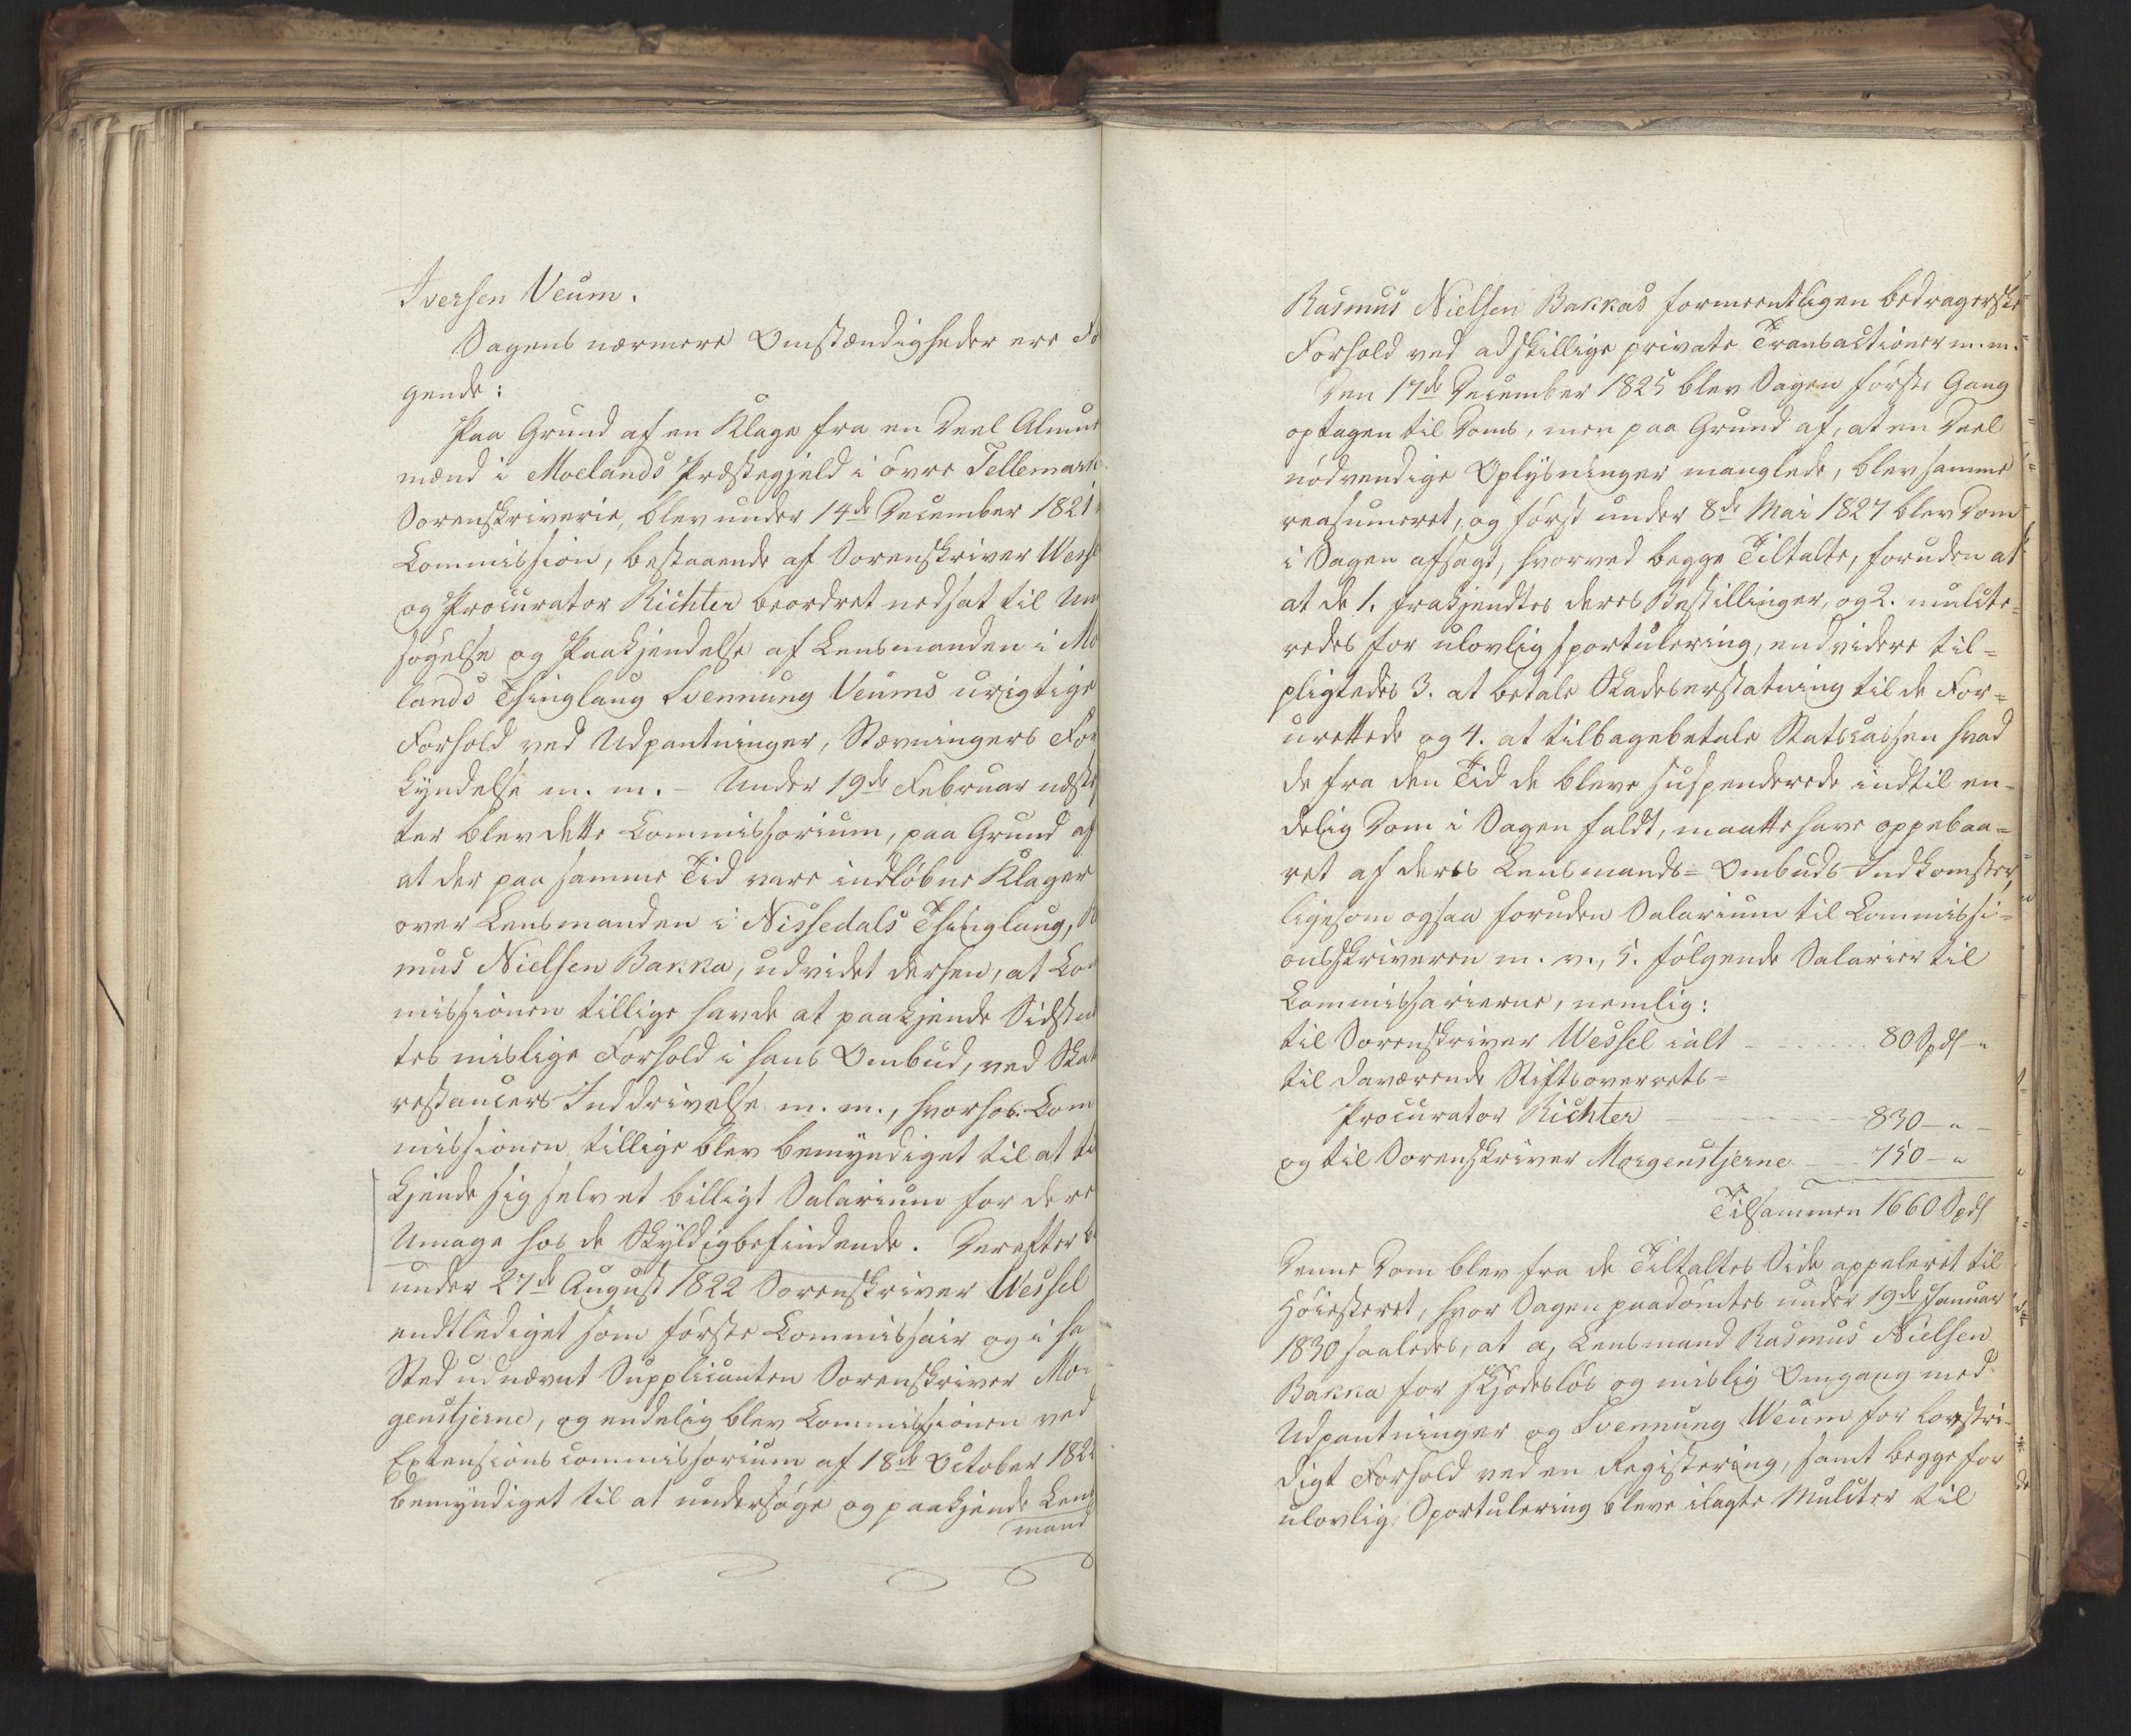 Iversen Veum.
Sagens nærmere Omstændigheder ere Fø
gende:
Paa Grund af en Klage fra en Deel Almue
mænd i Moelands Præstegjeld i øvre Tellemark
Sorenskriverie, blev under 14de December 1821
Commission, bestaaende af Sorenskriver Wess
og Procurator Richter beordret nedsat til Un
søgelse og Paakjendelse af Lensmanden i Mo
lands Thinglaug Svennung Veums urigtige
Forhold ved Udpantninger, Stævningers For
kyndelse m. m. – Under 19de Februar næst
ter blev dette Commissorium, paa Grund af
at der paa samme Tid vare indløbne Klager
over Lensmanden i Nissedals Thinglaug,
mus Nielsen Bakka, udvidet derhen, at Co
missionen tillige havde at paakjende Sidst
tes mislige Forhold i hans Ombud, ved Skat
restancers Inddrivelse m. m., hvorhos Com
missionen tillige blev bemyndiget til at til
kjende sig selv et billigt Salarium for dere
Umage hos de Skyldigbefindende. Derefter b
under 27de August 1822 Sorenskriver Wessel
endtlediget som første Commissair og i ha
Sted udnævnt Supplicanten Sorenskriver Mor
genstjerne, og endelig blev Commissionen ved
Extensionscommissorium af 18de October 182
bemyndiget til at undersøge og paakjende Lens
mand
Rasmus Nielsen Bakkas formeentligen bedragerske
Forhold ved adskillige private Transactioner m. m.
Den 17de December 1825 blev Sagen første Gang
optagen til Doms, men paa Grund af, at en Deel
nødvendige Oplysninger manglede, blev samme
reasumeret, og først under 8de Mai 1827 blev Dom
i Sagen afsagt, hvorved begge Tiltalte, foruden at
at de 1. frakjendtes deres Bestillinger, og 2. mulcte-
redes for ulovlig sportulering, endvidere til=
pligtedes 3. at betale Skadeserstatning til de For=
urettede og 4. at tilbagebetale Statscassen hvad
de fra den Tid de bleve suspenderede indtil en-
delig Dom i Sagen faldt, maatte have oppebaa=
ret af deres Lensmands= Ombuds Indkomster,
ligesom ogsaa foruden Salarium til Commissi=
onsskriveren m. v., 5. følgende Salarier til
Commissarierne, nemlig:
til Sorenskriver Wessel ialt - - - - - - - 80 Spd -"
til daværende Stiftsoverrets=
Procurator Richter - - - 830 - "
og til Sorenskriver Morgenstjerne - - 750 - "
Tilsammen 1660 Spd
Denne Dom blev fra de Tiltaltes Side appeleret til
Høiesteret, hvor Sagen paadømtes under 19de Januar
1830 saaledes, at a, Lensmand Rasmus Nielsen
Bakka for skjødesløs og mislig Omgang med
Udpantninger og Svennung Weum for lovstri-
digt Forhold ved en Registering, samt begge for
ulovlig Sportulering bleve ilagte Mulcter til